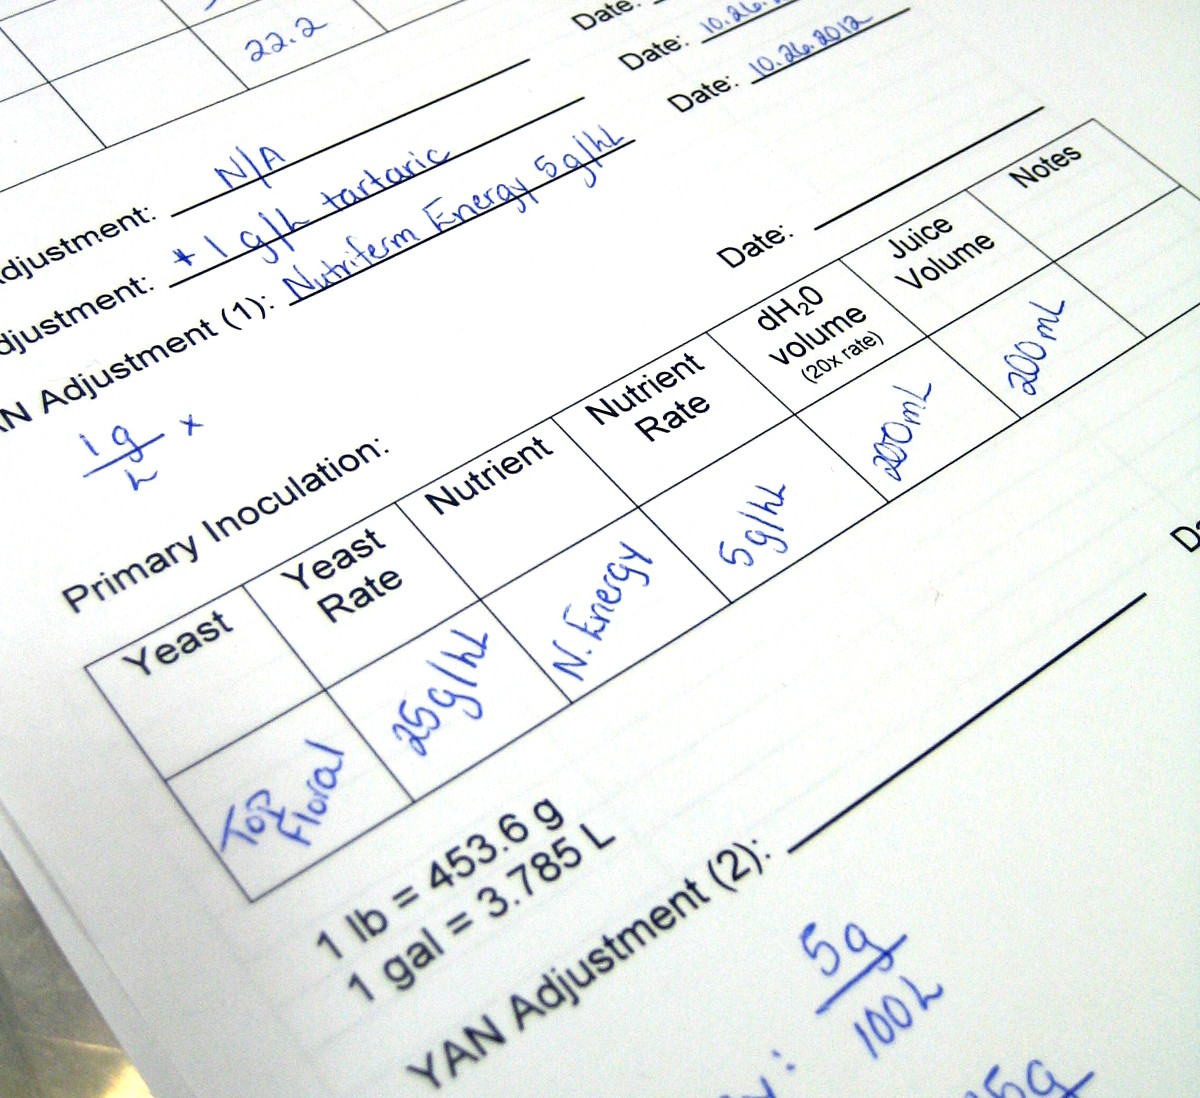 22.2
Date:
Date: 10.26.
Date: 10.26.2012
djustment: N/A
djustment: + 1 g/L tartaric
N Adjustment (1): Nutriferm Energy 5g/hL
Date:
1g/L x
Primary Inoculation:
Yeast Yeast Rate Nutrient Nutrient Rate dH₂0 volume (20x rate) Juice Volume Notes
Top Floral 25g/hL N. Energy 5g/hL 200mL 200mL
1 lb = 453.6 g
1 gal = 3.785 L
YAN Adjustment (2):
5g/100L